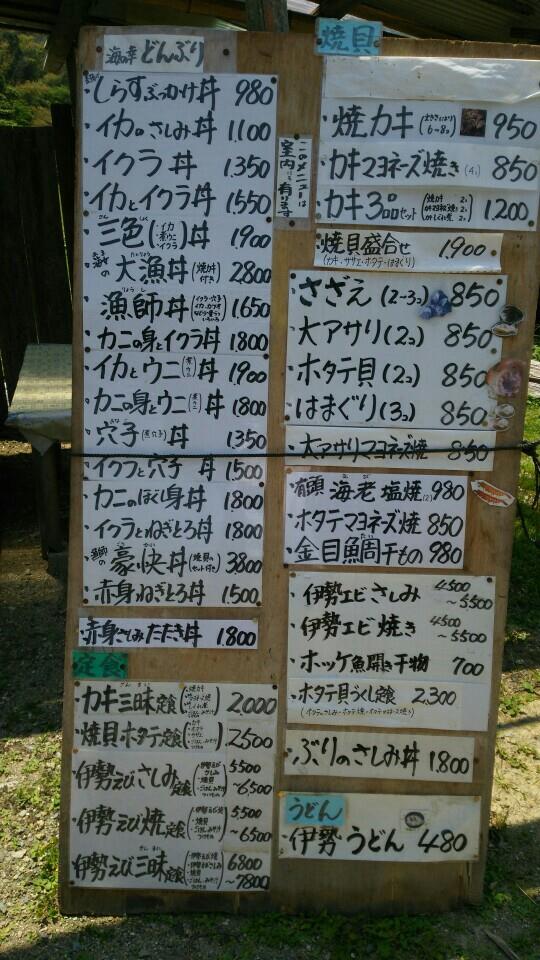 海の幸 どんぶり
・しらすぶっかけ丼 980
・イカのさしみ丼 1,100
・イクラ丼 1,350
・イカとイクラ丼 1,550
・三色(・イカ ・煮ウニ ・イクラ)丼 1,900
・大漁丼(焼カキ付き) 2,800
・漁師丼 1,650
・カニの身とイクラ丼 1,800
・イカとウニ(煮ウニ)丼 1,900
・カニの身とウニ(煮ウニ)丼 1,800
・穴子(煮穴子)丼 1,350
・イクラと穴子丼 1,500
・カニのほぐし身丼 1,800
・イクラとねぎとろ丼 1,800
・漁師の豪快丼(焼貝のセット付き) 3,800
・赤身ねぎとろ丼 1,500
・赤身さしみたたき丼 1,800
定食
・カキ三昧定食 2,000
・焼貝ホタテ定食 2,500
・伊勢えびさしみ定食 5,500~6,500
・伊勢えび焼定食 5,500~6500
・伊勢えび三昧定食 6800~7800
このメニューは室内にも有ります
焼貝
・焼カキ(大きさにより6~8コ) 950
・カキマヨネーズ焼き(4コ) 850
・カキ3品セット 1,200
・焼貝盛合せ 1,900
(カキ・サザエ・ホタテ・はまぐり)
・さざえ(2~3コ) 850
・大アサリ(2コ) 850
・ホタテ貝(2コ) 850
・はまぐり(3コ) 850
・大アサリマヨネーズ焼 850
・有頭海老塩焼(2) 980
・ホタテマヨネーズ焼 850
・金目鯛干もの 980
・伊勢エビさしみ 4500~5500
・伊勢エビ焼き 4500~5500
・ホッケ魚開き干物 700
・ホタテ貝づくし定食 2,300
(ホタテのさしみ・ホタテ焼・ホタテマヨネーズ焼き)
・ぶりのさしみ丼 1,800
うどん
・伊勢うどん 480